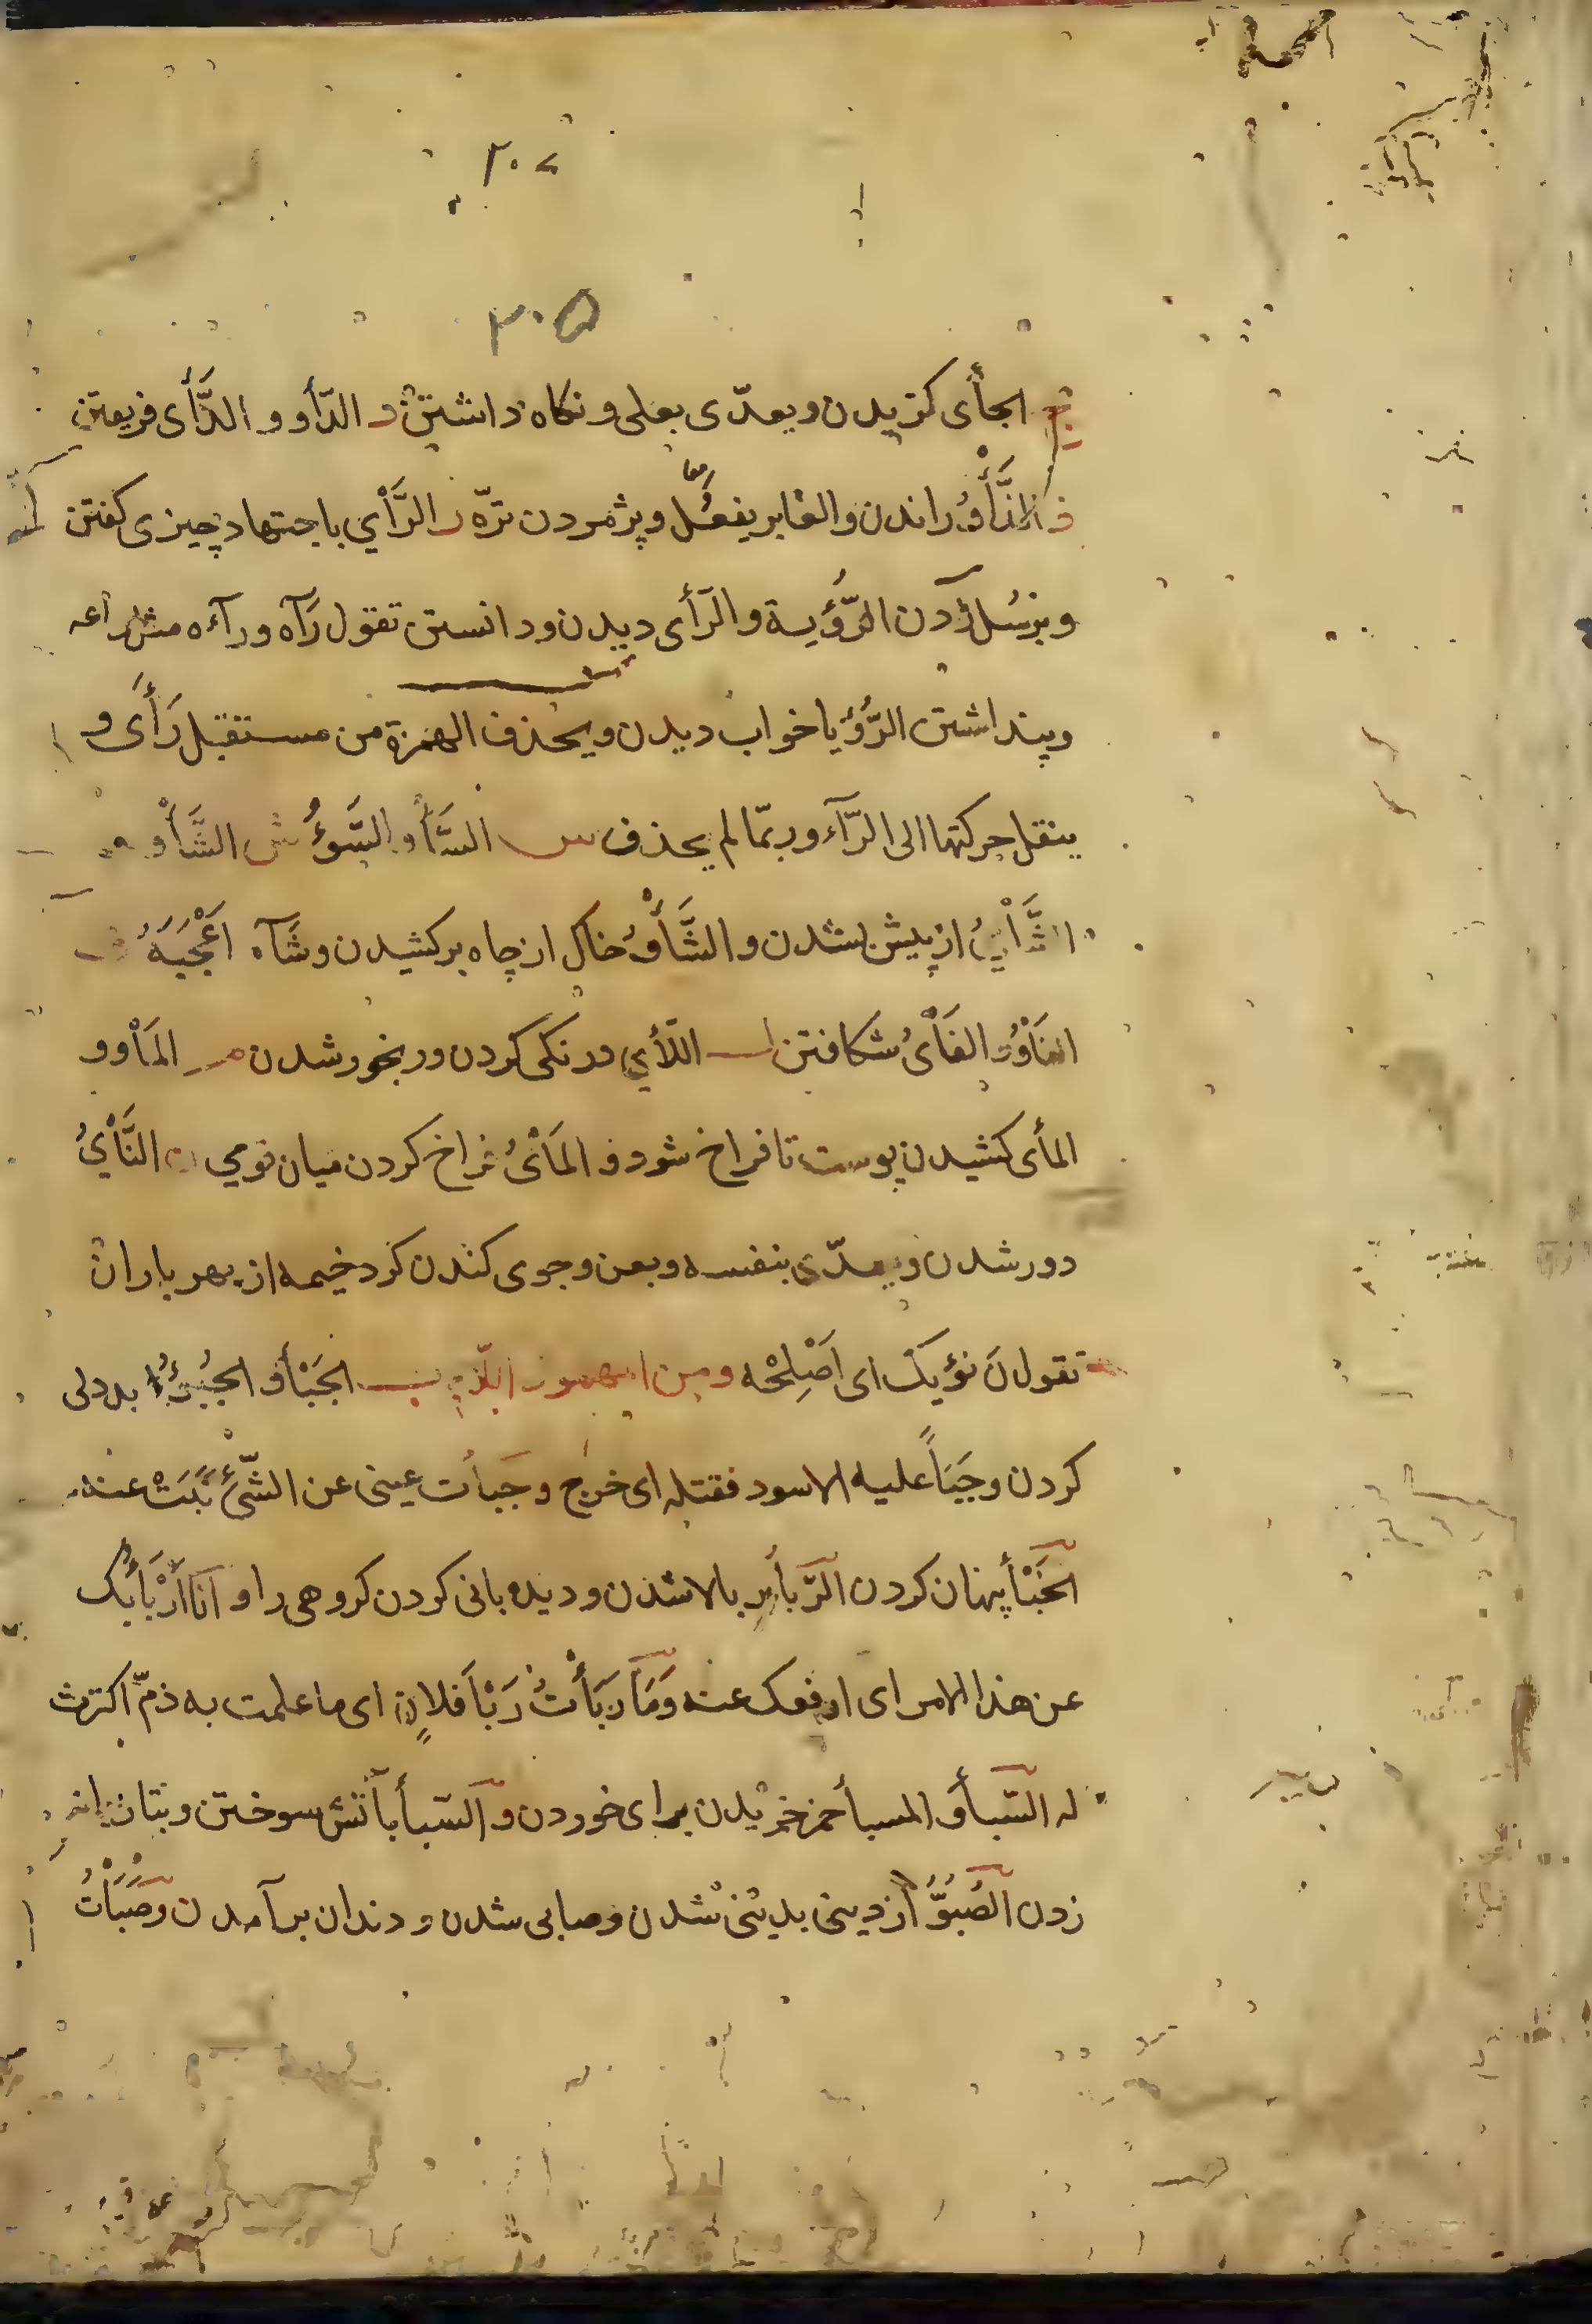 ۳۰۷
۳۰۵
ج الجأی کزیدن و یعدّی بعلی و نکاه داشتن د الدّأو و الدَّأی فریفتن
ذ الذَّأْوُ راندن و الغابر یفعُل معا و پژمردن ترّه ر الرَّأْي باجتهاد چیزی کفتن
و برشش زدن الرُّؤْیة و الرّأی دیدن و دانستن تقول رَآه و رآءه مثل راعه
و پنداشتن الرُّؤیا خواب دیدن و یحذف الهمزة من مستقبل رَأَی و
ینقل حرکتها الی الرّآء و ربّما لم یحذف س السَّأو السَّوءُ ش الشَّأو و
الشَّأْيُ از پیش بشدن و الشَّأْوُ خاک از چاه برکشیدن و شَآه اَعْجَبَهُ ف
الفَأْوُ و الفَأْیُ شکافتن ل اللّأْي درنکی کردن و رنجور شدن م المَأْو و
المأی کشیدن پوست تا فراخ شود و المَأْیُ فراخ کردن میان قومی ن النَّأْيُ
دور شدن و یعدّی بنفسه و بعن و جوی کندن کرد خیمه از بهر باران
تقول نَ نؤیک ای اَصْلِحْه و من المهموز اللّام ب الجَبْأ و الجُبُوْءُ بددلی
کردن و جَبَأَ علیه الاسود فقتله ای خرج و جَبأت عینی عن الشّئ نَبَتْ عنه
الخَبْأ پنهان کردن الرَّبأ بر بالا شدن و دیده بانی کردن کروهی را و اَنَا اَرْبَأُبک
عن هذا الامر ای ارفعک عنه وَمَا رَبَأْتُ رَبْأَ فلانٍ ای ما علمت به ذمّ اکترث
له السَّبأ و المسبأ خمر خریدن برای خوردن و السّبأ بآتش سوختن و بتازیانه
زدن الصُّبُوّ از دینی بدینی شدن و صابی شدن و دندان برآمدن و صَبَأْتُ